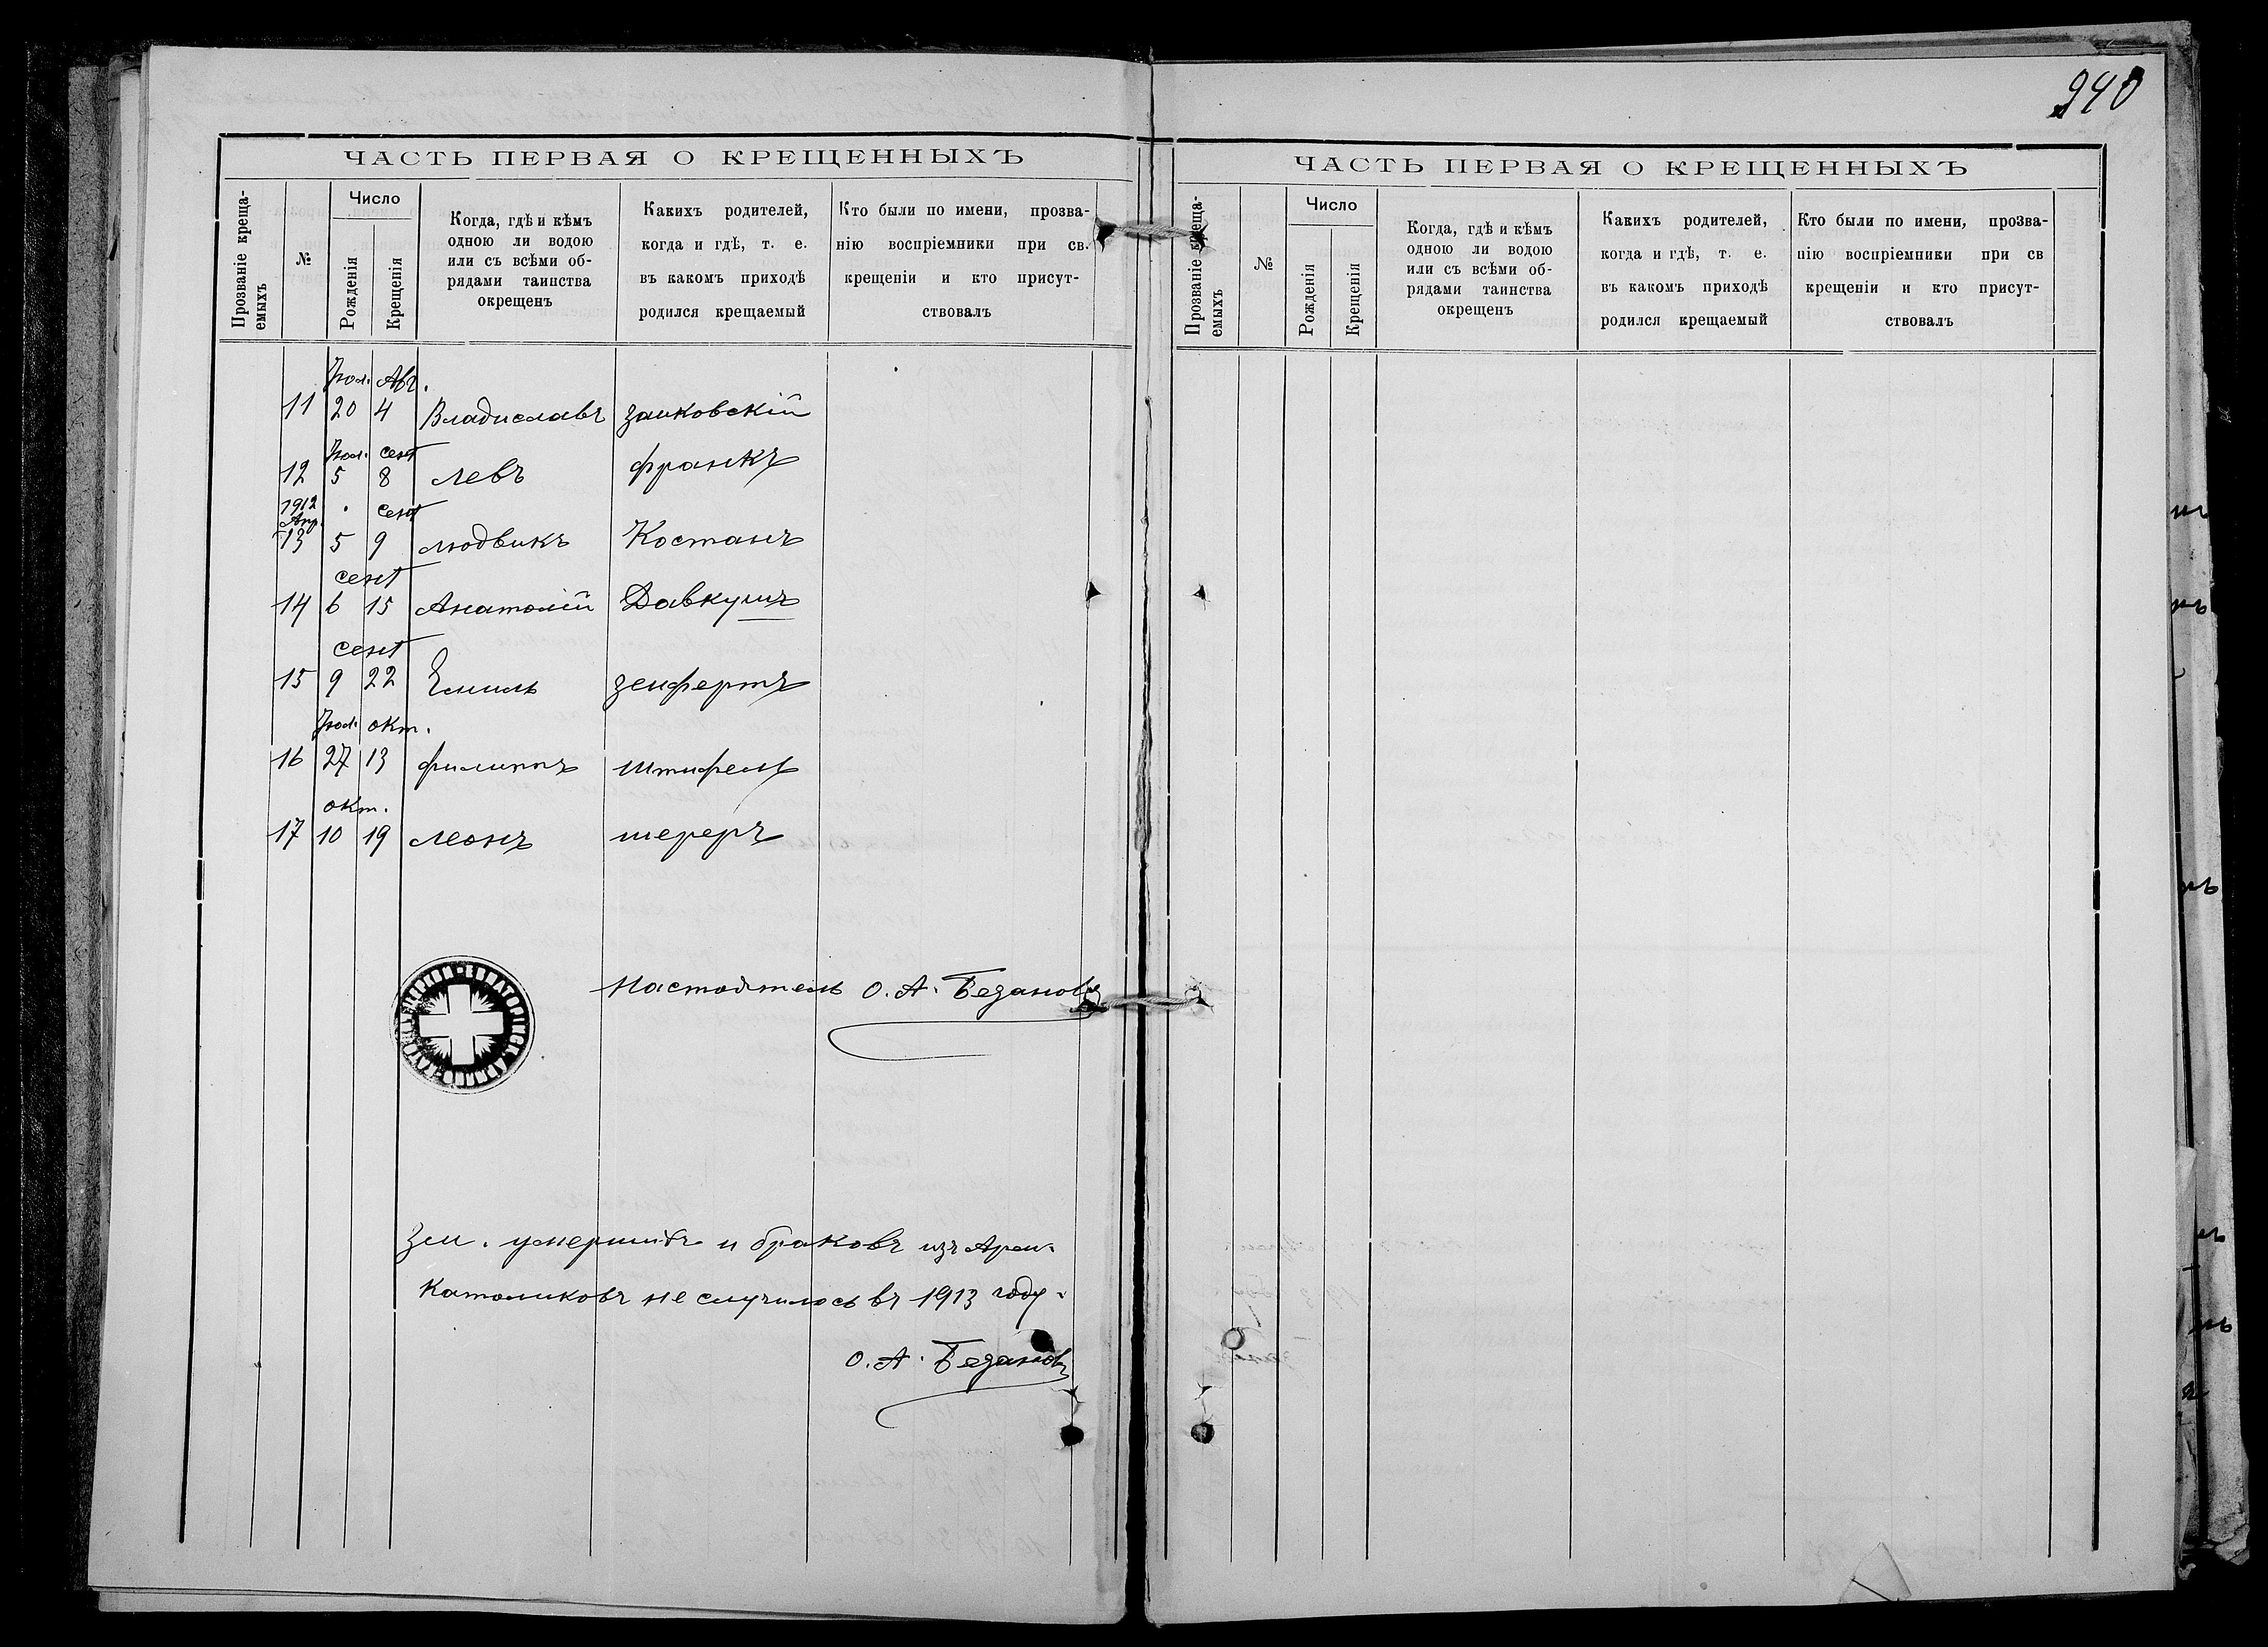 940
ЧАСТЬ ПЕРВАЯ О КРЕЩЕННЫХЪ
Прозваніе креща-
емыхъ
№
Число
Рожденія
Крещенія
Когда, гдѣ и кѣмъ
одною ли водою
или съ всѣми об-
рядами таинства
окрещенъ
Какихъ родителей,
когда и гдѣ, т. е.
въ какомъ приходѣ
родился крещаемый
Кто были по имени, прозва-
нію воспріемники при св.
крещеніи и кто присут-
ствовалъ
Іюл. Авг.
11 20 4 Владиславъ заиковскій
Іюл. сент
12 5 8 Левъ франкъ
1912
Апр. сент
13 5 9 людвикъ Костанъ
сент
14 6 15 Анатолій Давкушъ
сент
15 9 22 Емиль зейфертъ
Іюл. окт.
16 27 13 филиппъ штифель
окт.
17 10 19 леонъ шереръ
Настоятель О. А. Безановъ
умершихъ и браковъ изъ Арм.
Католиковъ не случилось въ 1913 году.
О. А. Безановъ
ЧАСТЬ ПЕРВАЯ О КРЕЩЕННЫХЪ
Прозваніе креща-
емыхъ
№
Число
Рожденія
Крещенія
Когда, гдѣ и кѣмъ
одною ли водою
или съ всѣми об-
рядами таинства
окрещенъ
Какихъ родителей,
когда и гдѣ, т. е.
въ какомъ приходѣ
родился крещаемый
Кто были по имени, прозва-
нію воспріемники при св
крещеніи и кто присут-
ствовалъ